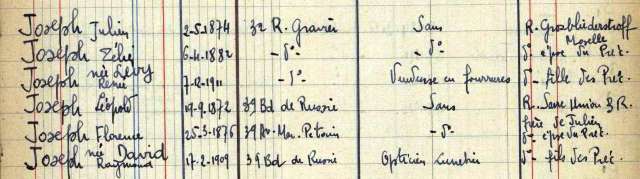 Joseph Julien 2-5-1874 32 R. Gravier Sans R. Grosbliederstroff Moselle
Joseph Zélie 6-4-1882 - d°- - d°- d° épse du Préc.
née Lévy
Joseph Renée 7-12-1911 - d°- Vendeuse en fourrures d° fille des Préc.
Joseph Léopold 19-9-1872 39 Bd de Russie Sans R. Sarre Union B R.
frère de Julien
Joseph Florence 25-3-1876 39 Av. Mar. Petain - d°- d° épse du Préc.
née David
Joseph Raymond 17-2-1909 39 Bd de Russie Opticien Lunetier d° fils des Préc.